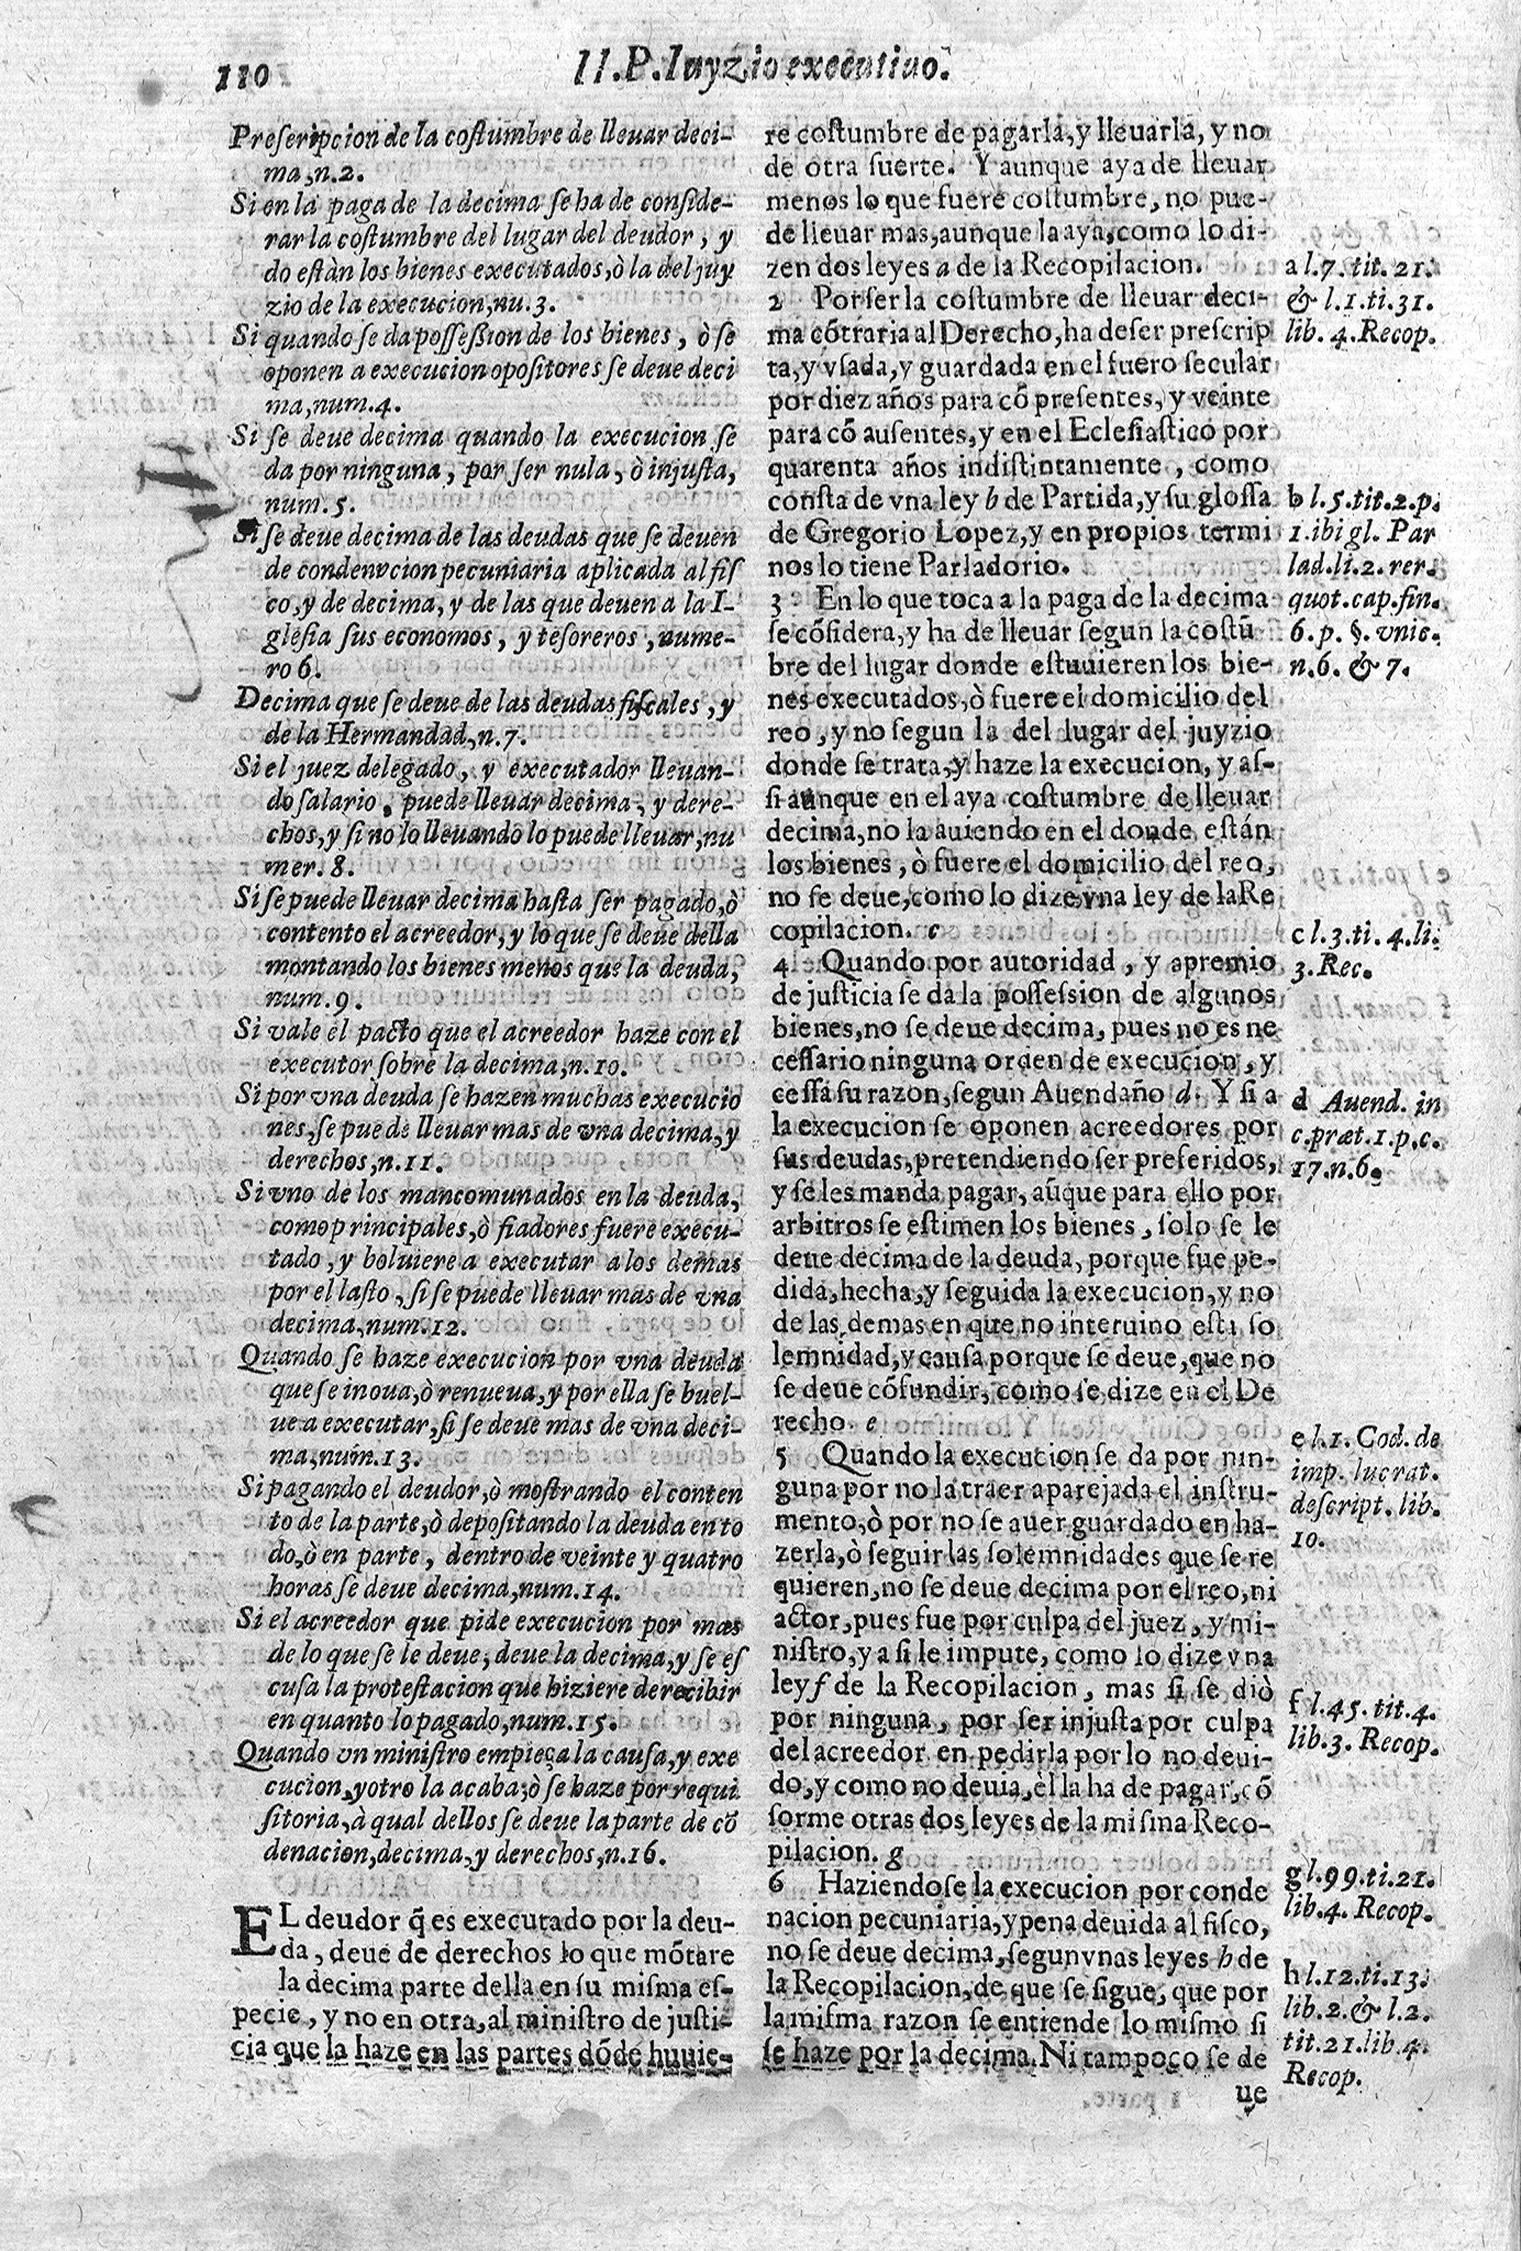 110
II.P.Iuyzio executiuo.
Preſcripcion de la coſtumbre de lleuar deci-
ma, n.2.
Si en la paga de la decima ſe ha de conſide-
rar la coſtumbre del lugar del deudor, y
do eſtàn los bienes executados, ò la del juy
zio de la execucion, nu.3.
Si quando ſe da poſſeßion de los bienes, ò ſe
oponen a execucion opoſitores ſe deue deci
ma, num.4.
Si ſe deue decima quando la execucion ſe
da por ninguna, por ſer nula, ò injuſta,
num.5.
Si ſe deue decima de las deudas que ſe deuen
de condenacion pecuniaria aplicada al fiſ
co, y de decima, y de las que deuen a la I-
gleſia ſus economos, y teſoreros, nume-
ro 6.
Decima que ſe deue de las deudas fiſcales, y
de la Hermandad, n.7.
Si el juez delegado, y executador lleuan-
do ſalario, puede lleuar decima, y dere-
chos, y ſi no lo lleuando lo puede lleuar, nu
mer.8.
Si ſe puede lleuar decima haſta ſer pagado, ò
contento el acreedor, y lo que ſe deue della
montando los bienes menos que la deuda,
num.9.
Si vale el pacto que el acreedor haze con el
executor ſobre la decima, n.10.
Si por vna deuda ſe hazen muchas execucio
nes, ſe puede lleuar mas de vna decima, y
derechos, n.11.
Si vno de los mancomunados en la deuda,
como principales, ò fiadores fuere execu-
tado, y boluiere a executar a los demas
por el laſto, ſi ſe puede lleuar mas de vna
decima, num.12.
Quando ſe haze execucion por vna deuda
que ſe inoua, ò renueua, y por ella ſe buel-
ue a executar, ſi ſe deue mas de vna deci-
ma, num.13.
Si pagando el deudor, ò moſtrando el conten
to de la parte, ò depoſitando la deuda en to
do, ò en parte, dentro de veinte y quatro
horas ſe deue decima, num.14.
Si el acreedor que pide execucion por mas
de lo que ſe le deue, deue la decima, y ſe eſ
cuſa la proteſtacion que hiziere de recibir
en quanto lo pagado, num.15.
Quando vn miniſtro empieça la cauſa, y exe
cucion, y otro la acaba; ò ſe haze por requi
ſitoria, à qual dellos ſe deue la parte de cõ
denacion, decima, y derechos, n.16.
EL deudor q̃ es executado por la deu-
da, deue de derechos lo que mõtare
la decima parte della en ſu miſma eſ-
pecie, y no en otra, al miniſtro de juſti-
cia que la haze en las partes dõde huuie-
re coſtumbre de pagarla, y lleuarla, y no
de otra ſuerte. Y aunque aya de lleuar
menos lo que fuere coſtumbre, no pue-
de lleuar mas, aunque la aya, como lo di-
zen dos leyes a de la Recopilacion.
2 Por ſer la coſtumbre de lleuar deci-
ma cõtraria al Derecho, ha de ſer preſcrip
ta, y vſada, y guardada en el fuero ſecular
por diez años para cõ preſentes, y veinte
para cõ auſentes, y en el Eccleſiaſtico por
quarenta años indiſtintamente, como
conſta de vna ley b de Partida, y ſu gloſſa
de Gregorio Lopez, y en propios termi
nos lo tiene Parladorio.
3 En lo que toca a la paga de la decima
ſe cõſidera, y ha de lleuar ſegun la coſtũ
bre del lugar donde eſtuuieren los bie-
nes executados, ò fuere el domicilio del
reo, y no ſegun la del lugar del juyzio
donde ſe trata, y haze la execucion, y aſ-
ſi aunque en el aya coſtumbre de lleuar
decima, no la auiendo en el donde eſtán
los bienes, ò fuere el domicilio del reo,
no ſe deue, como lo dize vna ley de la Re
copilacion. c
4 Quando por autoridad, y apremio
de juſticia ſe da la poſſeſsion de algunos
bienes, no ſe deue decima, pues no es ne
ceſſario ninguna orden de execucion, y
ceſſa ſu razon, ſegun Auendaño d. Y ſi a
la execucion ſe oponen acreedores por
ſus deudas, pretendiendo ſer preferidos,
y ſe les manda pagar, aũque para ello por
arbitros ſe eſtimen los bienes, ſolo ſe le
deue decima de la deuda, porque fue pe-
dida, hecha, y ſeguida la execucion, y no
de las demas en que no interuino eſta ſo
lemnidad, y cauſa porque ſe deue, que no
ſe deue cõfundir, como ſe dize en el De
recho. e
5 Quando la execucion ſe da por nin-
guna por no la traer aparejada el inſtru-
mento, ò por no ſe auer guardado en ha-
zerla, ò ſeguir las ſolemnidades que ſe re
quieren, no ſe deue decima por el reo, ni
actor, pues fue por culpa del juez, y mi-
niſtro, y a ſi le impute, como lo dize vna
ley f de la Recopilacion, mas ſi ſe diò
por ninguna, por ſer injuſta por culpa
del acreedor en pedirla por lo no deui-
do, y como no deuia, èl la ha de pagar, cõ
forme otras dos leyes de la miſma Reco-
pilacion. g
6 Haziendoſe la execucion por conde
nacion pecuniaria, y pena deuida al fiſco,
no ſe deue decima, ſegun vnas leyes h de
la Recopilacion, de que ſe ſigue, que por
la miſma razon ſe entiende lo miſmo ſi
ſe haze por la decima. Ni tampoco ſe de
ue
a l.7. tit. 21.
& l.1.ti.31.
lib. 4. Recop.
b l.5.tit.2.p.
1.ibi gl. Par
lad.li.2. rer.
quot.cap.fin.
6.p. §. vnic.
n.6. & 7.
c l.3.ti.4.li.
3.Rec.
d Auend. in
c.præt.1.p.c.
17.n.6.
e l.1. Cod. de
imp. lucrat.
deſcript. lib.
10.
f l.45. tit.4.
lib.3. Recop.
g l.99.ti.21.
lib.4. Recop.
h l.12.ti.13.
lib.2. & l.2.
tit.21.lib.4.
Recop.